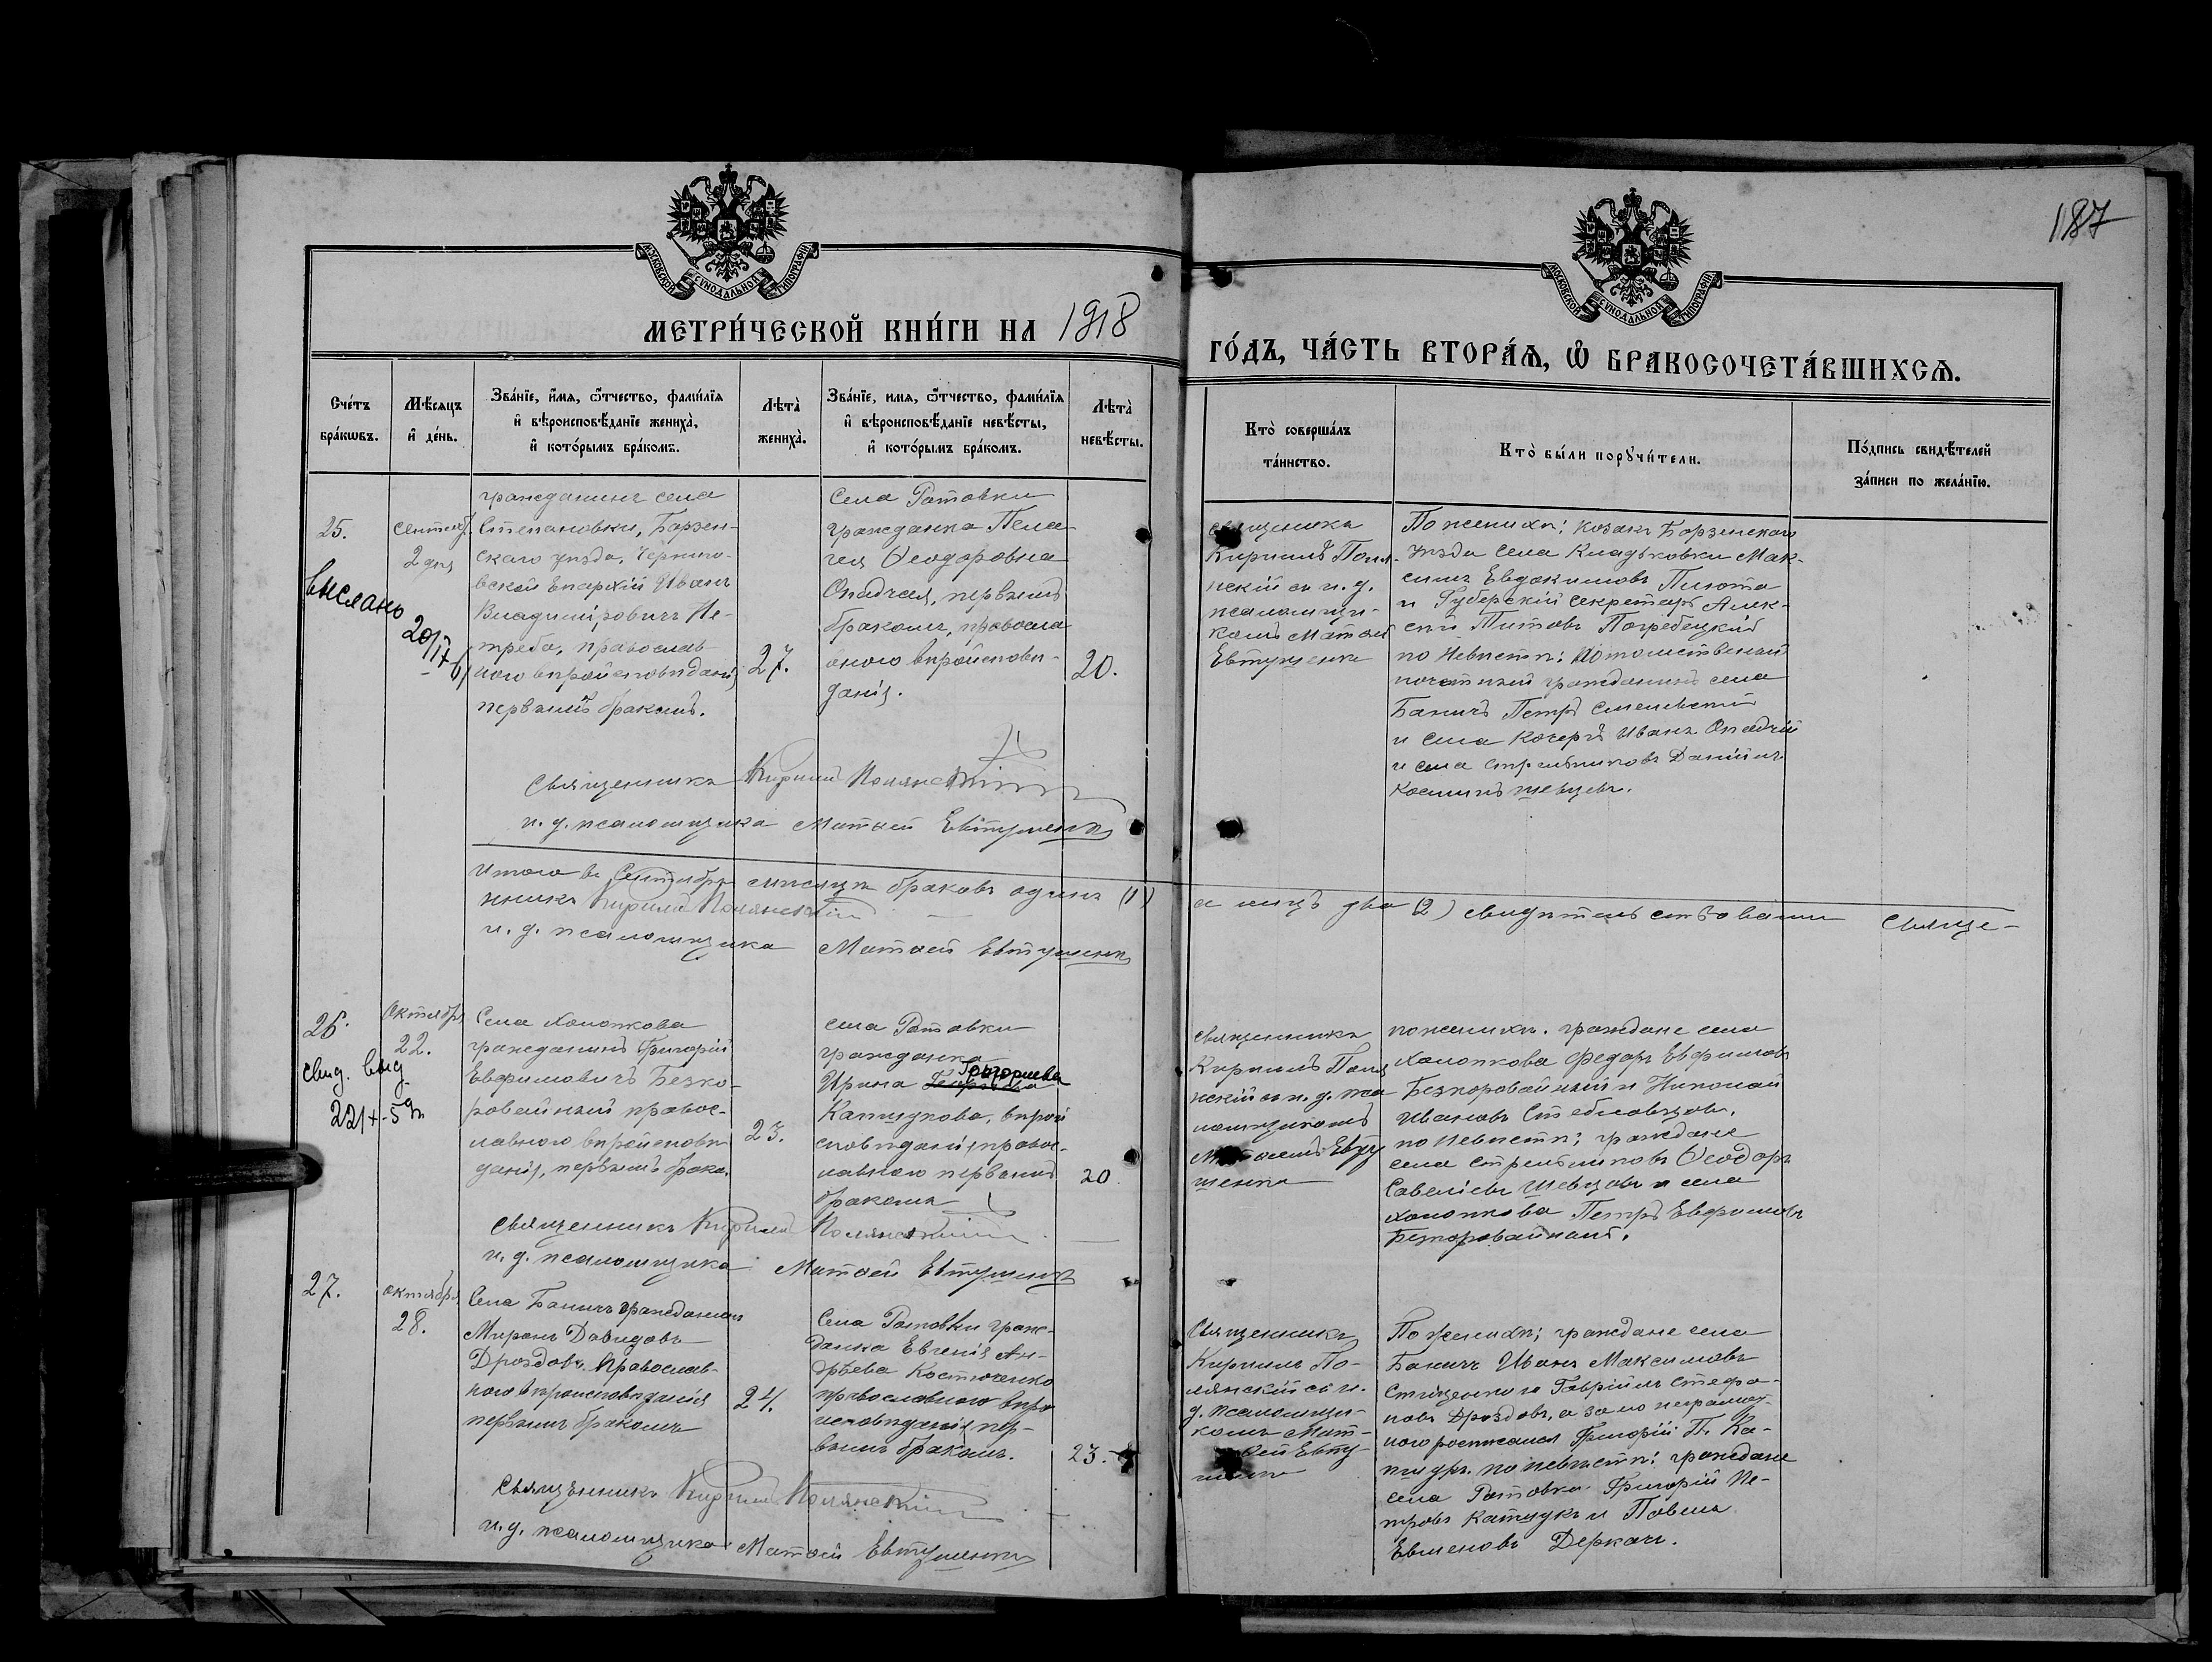 187
МОСКОВСКОЙ СУНОДАЛЬНОЙ ТИПОГРАФІИ
МОСКОВСКОЙ СУНОДАЛЬНОЙ ТИПОГРАФІИ
МЕТРИ́ЧЕСКОЙ КНИ́ГИ НА 1918
ГО́ДЪ, ЧА́СТЬ ВТОРА́Ѧ, Ѽ БРАКОСОЧЕТА́ВШИХСѦ.
Сче́тъ
бра́кѡвъ.
Мѣ́сяцъ
и҆ де́нь.
Зва́нїе, и҆́мѧ, ѻ҆́тчество, фами́лїѧ
и҆ вѣроисповѣ́данїе жениха̀,
и҆ кото́рымъ бра́комъ.
Лѣта̀
жениха̀.
Зва́нїе, имѧ, ѻ҆́тчество, фами́лїѧ
и҆ вѣроисповѣ́данїе невѣ́сты,
и҆ кото́рымъ бра́комъ.
Лѣта̀
невѣ́сты.
Кто̀ соверша́лъ
та́инство.
Кто̀ бы́ли порꙋчи́тели.
По́дпись свидѣ́телей
за́писи по жела́нїю.
25.
Сентяб.
2 дня
выслано
20/IX
гражданинъ села
Степановки, Борзен-
скаго уѣзда, Черниго-
вской Епархіи Иванъ
Владиміровичъ Не-
треба, православ-
ного вѣроисповѣданія
первымъ бракомъ.
27.
Села Ротовки
гражданка Пела-
гея Ѳеодоровна
Опадчая, первымъ
бракомъ, правосла
вного вѣроисповѣ-
данія.
20.
священникъ
Кирилъ Поля-
нскій съ и. д.
псаломщи-
комъ Матѳей
Евтушенко
По жениху: козакъ Борзенскаго
уѣзда села Кладьковки Мак-
симъ Евдокимовъ Пилюта
и Губерскій секретарь Алек-
сѣй Титовъ Погребецкій
по Невѣстѣ: Потомственый
почетный гражданинъ села
Баничъ Петръ Смелевскій
и села Кочергъ Иванъ Опадчій
и села стрельниковъ Даніилъ
Космичъ шевцевъ.
Священникъ Кирилъ Полянскій
и. д. псаломщика Матѳей Евтушенко
Итого въ Сентябрѣ мѣсяцѣ браковъ одинъ (1)
а лицъ два (2) свидѣтельствовали Свяще-
нникъ Кирилъ Полянскій
и. д. псаломщика Матѳей Евтушенко
26.
Октября
22.
свид. выд
221
Села Холопкова
гражданинъ Григорій
Евфимовичъ Безко-
ровайный правос-
лавного вѣроисповѣ
данія, первымъ брако.
23.
села Ротовки
гражданка
Григорьева
Ирина
Катщукова, вѣрои
сповѣданія, правос-
лавного первымъ
бракомъ
20
священникъ
Кирилъ Поля
нскій съ и. д. пса
ломщикомъ
Матѳеемъ Евту
шенко
по жениху. граждане села
Холопкова Федоръ Евфимовъ
Безкоровайный и Николай
Ивановъ Стебловцовъ.
по Невѣстѣ; граждане
села стрельниковъ Ѳеодоръ
Савеліевъ Шевцовъ и села
Холопкова Петръ Евфимовъ
Безкоровайный.
Священникъ Кирилъ Полянскій
и. д. псаломщика Матѳей Евтушенко
27.
октября
28.
Села Баничъ гражданинъ
Миронъ Давидовъ
Дроздовъ. Православ-
ного вѣроисповѣданія
первымъ бракомъ
24.
Села Ротовки граж-
данка Евгенія Ан-
дрѣева Костюченко
православного вѣро
исповѣданія пер-
вымъ бракомъ.
23.
Священникъ
Кирилъ По-
лянскій съ и.
д. псаломщи-
комъ Мат-
ѳей Евту-
шенко
По жениху; граждане села
Баничъ Иванъ Максимовъ
Стеценко и Гавріилъ Стефа-
новъ Дроздовъ, а за по неграмот-
ного росписался Григорій П. Ка-
тщукъ. по невѣстѣ: граждане
села Ротовки Григорій Пе-
тровъ Катщукъ и Павелъ
Евменовъ Деркачъ.
Священникъ Кирилъ Полянскій
и. д. псаломщика Матѳей Евтушенко